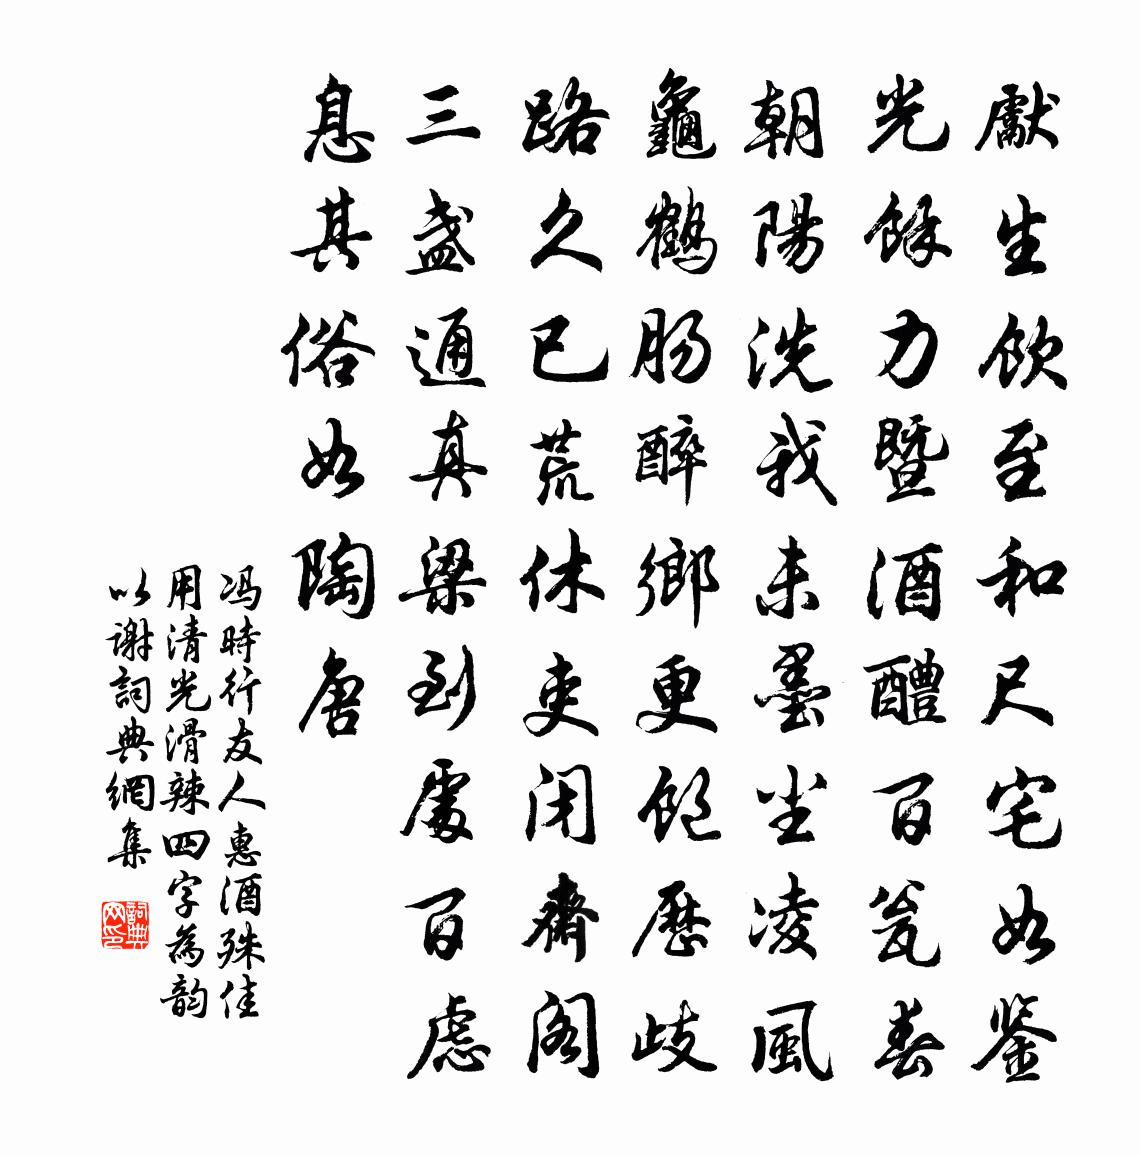 獻生飲至和尺宅如鑒
光餘力暨酒醴百瓮春
朝陽洗我朱墨尘凌風
龜鶴腸醉鄉更飽歷歧
路久已荒休吏闭齊閣
三盞通真梁到處百慮
息其俗如陶唐
冯時行友人惠酒殊佳
用清光滑辣四字為韵
以謝詞典網集
詞典网印